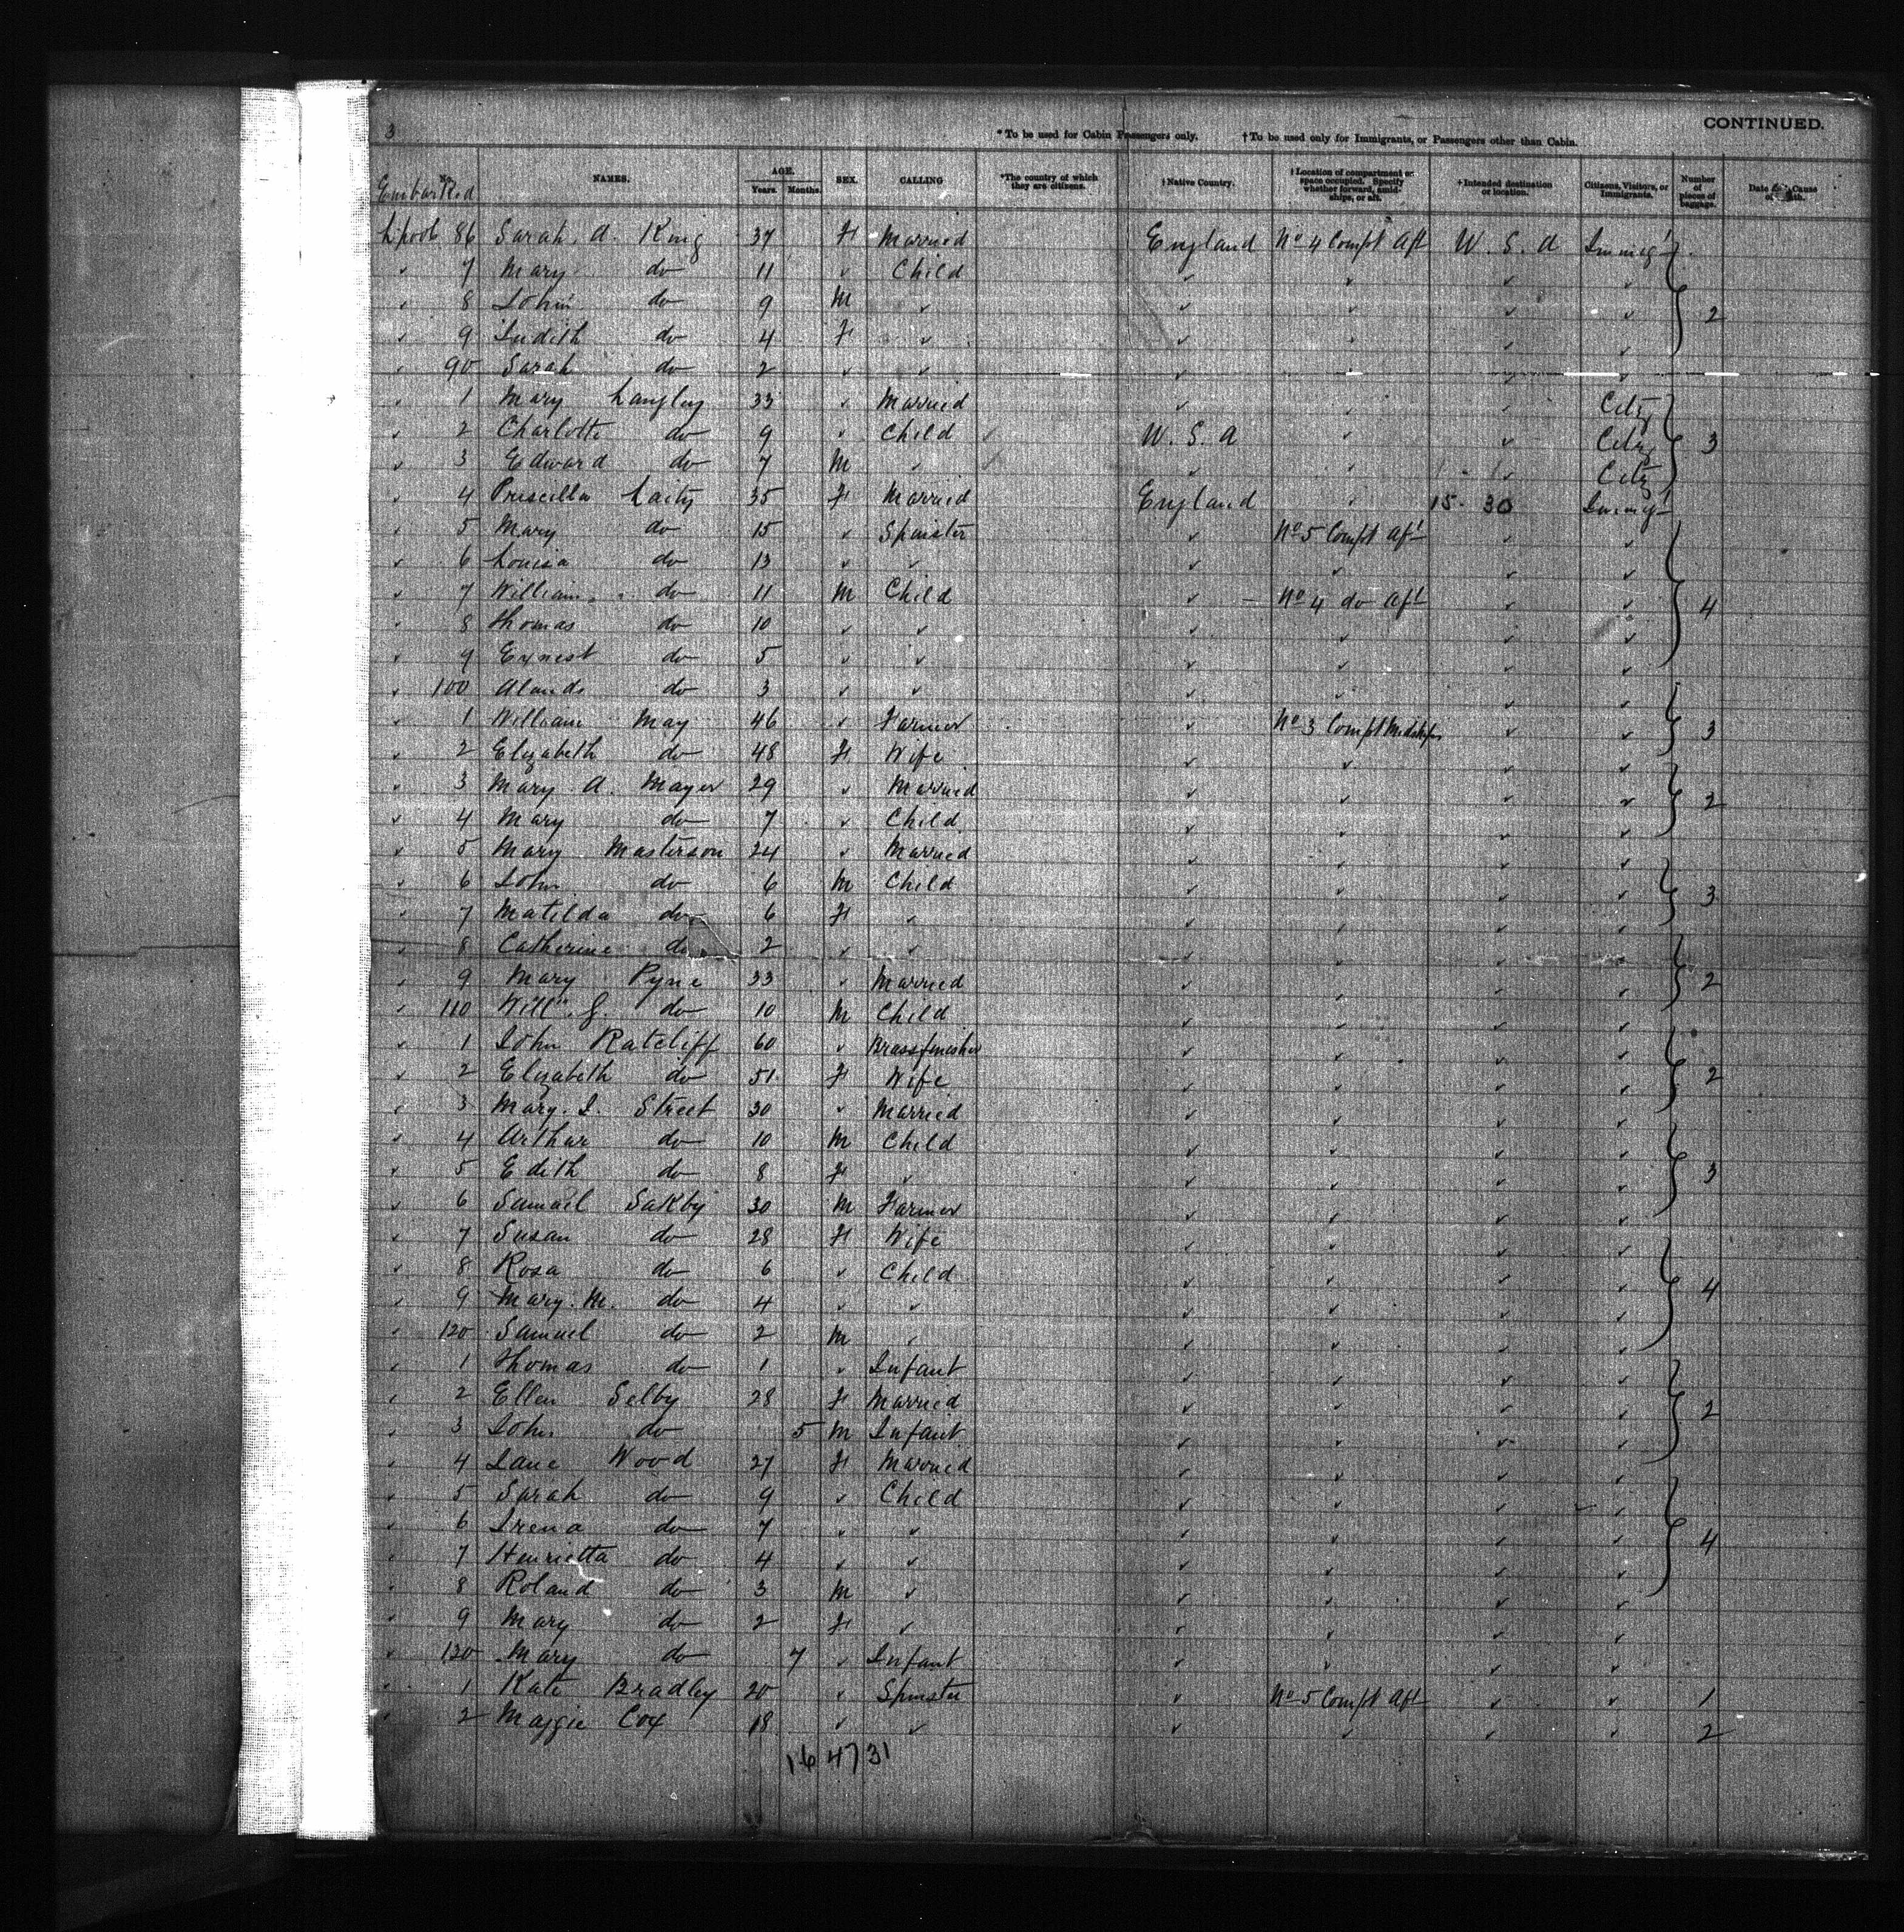 3
* To be used for Cabin Passengers only. † To be used only for Immigrants, or Passengers other than Cabin. CONTINUED.
No. NAMES. AGE. Years. Months. SEX. CALLING *The country of which they are citizens. †Native Country. †Location of compartment or space occupied. Specify whether forward, amidships, or aft. †Intended destination or location. Citizens, Visitors, or Immigrants. Number of pieces of baggage. Date & Cause of Death.
Embarked
L'pool 86 Sarah A. King 37 F Married England No 4 Compt Aft U. S. A Immigt
" 7 Mary do 11 " Child " " " "
" 8 John do 9 M " " " " " 2
" 9 Judith do 4 F " " " " "
" 90 Sarah do 2 " " " " " "
" 1 Mary Langley 33 " Married " " " Citz
" 2 Charlotte do 9 " Child U. S. A " " Citz 3
" 3 Edward do 7 M " " " " Citz
" 4 Priscilla Laity 35 F Married England " 15 - 30 Immigt
" 5 Mary do 15 " Spinster " No 5 Compt Aft " "
" 6 Louisa do 13 " " " " " "
" 7 William do 11 M Child " No 4 do Aft " " 4
" 8 Thomas do 10 " " " " " "
" 9 Ernest do 5 " " " " " "
" 100 do 3 " " " " " "
" 1 William May 46 " Farmer " No 3 Compt Midships " " 3
" 2 Elizabeth do 48 F Wife " " " "
" 3 Mary A. Mayer 29 " Married " " " " 2
" 4 Mary do 7 " Child " " " "
" 5 Mary Masterson 24 " Married " " " "
" 6 John do 6 M Child " " " " 3
" 7 Matilda do 6 F " " " " "
" 8 Catherine do 2 " " " " " "
" 9 Mary Pyne 33 " Married " " " " 2
" 110 Willm G. do 10 M Child " " " "
" 1 John Ratcliff 60 " Brassfinisher " " " "
" 2 Elizabeth do 51 F Wife " " " " 2
" 3 Mary. J. Street 30 " Married " " " "
" 4 Arthur do 10 M Child " " " "
" 5 Edith do 8 F " " " " " 3
" 6 Samuel Sakby 30 M Farmer " " " "
" 7 Susan do 28 F Wife " " " "
" 8 Rosa do 6 " Child " " " " 4
" 9 Mary. M. do 4 " " " " " "
" 120 Samuel do 2 M " " " " "
" 1 Thomas do 1 " Infant " " " "
" 2 Ellen Selby 28 F Married " " " " 2
" 3 John do 5 M Infant " " " "
" 4 Jane Wood 27 F Married " " " "
" 5 Sarah do 9 " Child " " " "
" 6 Irena do 7 " " " " " " 4
" 7 Henrietta do 4 " " " " " "
" 8 Roland do 3 M " " " " "
" 9 Mary do 2 F " " " " "
" 130 Mary do 7 " Infant " " " "
" 1 Kate Bradley 20 " Spinster " No 5 Compt Aft " " 1
" 2 Maggie Cox 18 " " " " " " 2
16 47 31